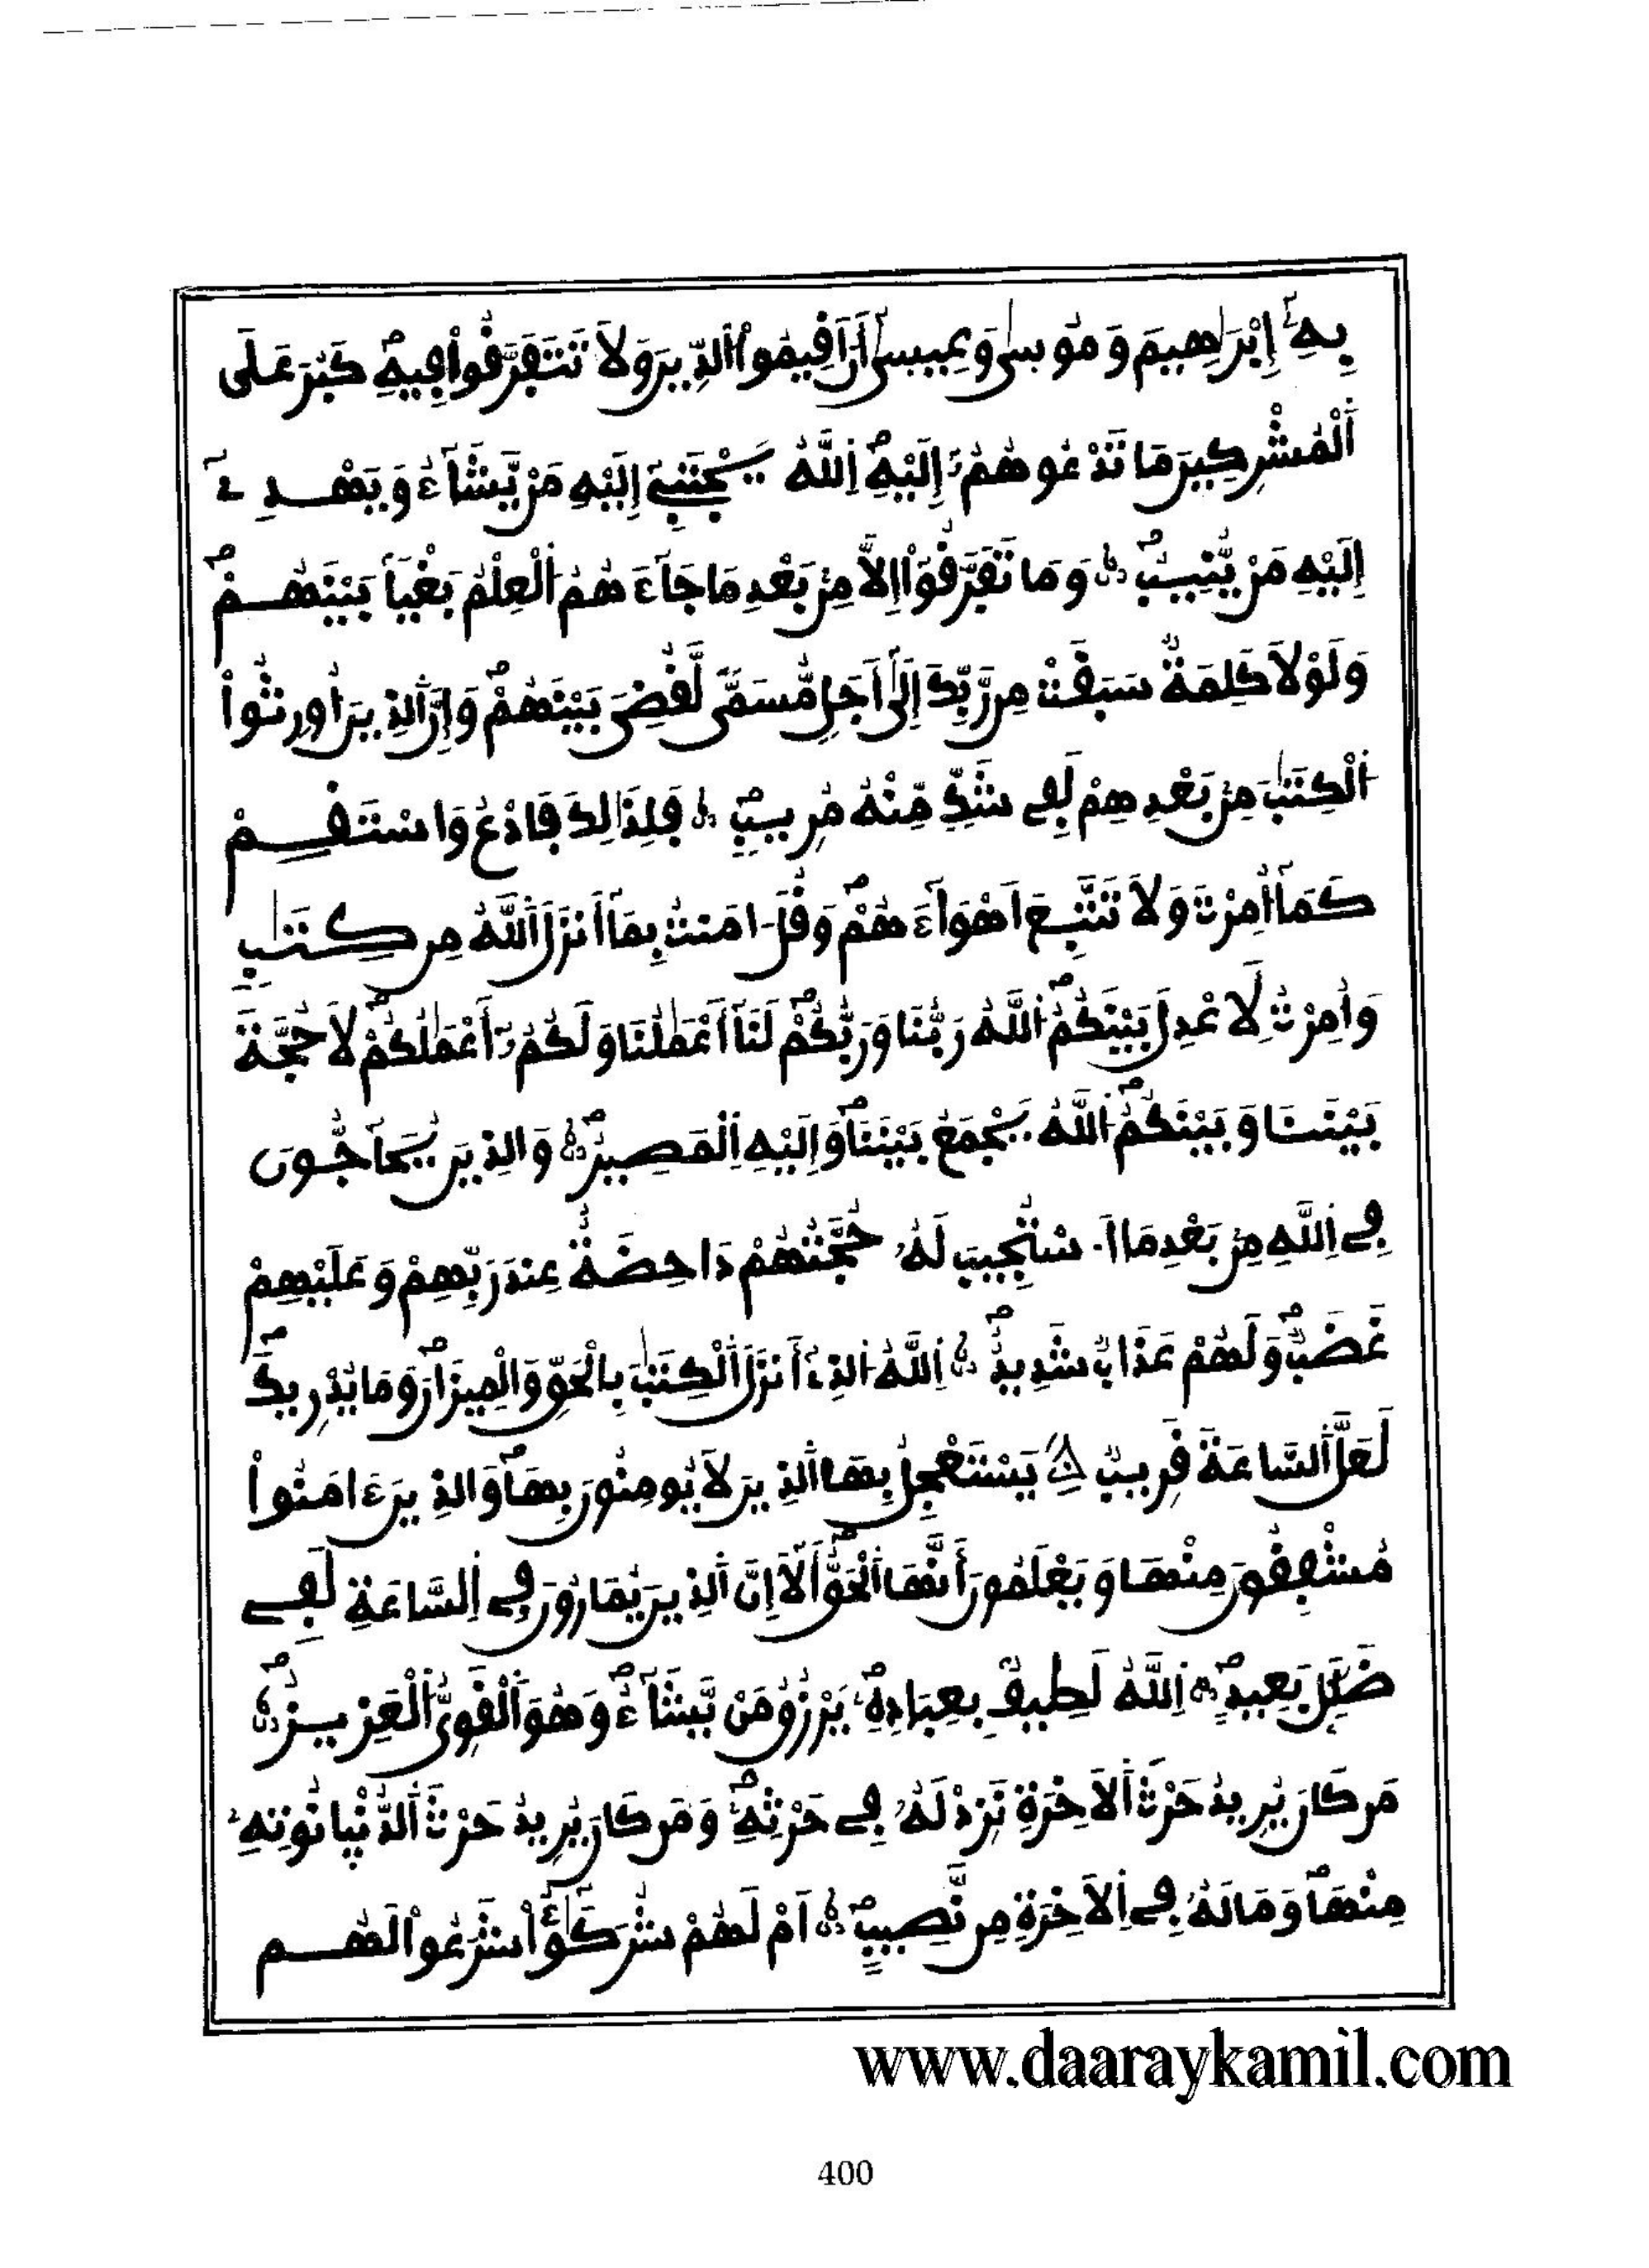 بِهِۦٓ إِبْرَٰهِيمَ وَمُوسىٰ وَعِيسىٰٓ أَنَ اَقِيمُوا۟ اُلدِّينَ وَلَا تَتَفَرَّقُوا۟ فِيهِ كَبُرَ عَلَى
اَلْمُشْرِكِينَ مَا تَدْعُوهُمُۥٓ إِلَيْهِ اِللَّهُ يَجْتَبِےٓ إِلَيْهِ مَنْ يَّشَآءُ وَيَهْدِےٓ
إِلَيْهِ مَنْ يُّنِيبُ وَمَا تَفَرَّقُوٓا۟ إِلَّا مِنۢ بَعْدِ مَا جَآءَهُمُ اُلْعِلْمُ بَغْياَۢ بَيْنَهُمْ
وَلَوْلَا كَلِمَةٌ سَبَقَتْ مِن رَّبِّكَ إِلَىٰٓ أَجَلٍ مُّسَمّىً لَّقُضِىَ بَيْنَهُمْ وَإِنَّ اَلذِينَ أُورِثُوا۟
اُلْكِتَٰبَ مِنۢ بَعْدِهِمْ لَفِے شَكٍّ مِّنْهُ مُرِيبٍ فَلِذَٰلِكَ فَادْعُ وَاسْتَقِمْ
كَمَآ أُمِرْتَ وَلَا تَتَّبِعَ اَهْوَآءَهُمْ وَقُلَ اٰمَنتُ بِمَآ أَنزَلَ اَللَّهُ مِن كِتَٰبٍ
وَأُمِرْتُ لِأَعْدِلَ بَيْنَكُمُ اُللَّهُ رَبُّنَا وَرَبُّكُمْ لَنَآ أَعْمَٰلُنَا وَلَكُمُۥٓ أَعْمَٰلُكُمْ لَا حُجَّةَ
بَيْنَنَا وَبَيْنَكُمُ اُللَّهُ يَجْمَعُ بَيْنَنَا وَإِلَيْهِ اِلْمَصِيرُ وَالذِينَ يُحَآجُّونَ
فِے اِللَّهِ مِنۢ بَعْدِ مَا اَسْتُجِيبَ لَهُۥ حُجَّتُهُمْ دَاحِضَةٌ عِندَ رَبِّهِمْ وَعَلَيْهِمْ
غَضَبٌ وَلَهُمْ عَذَابٌ شَدِيدٌ اِللَّهُ اُلذِےٓ أَنزَلَ اَلْكِتَٰبَ بِالْحَقِّ وَالْمِيزَانَ وَمَا يُدْرِيكَ
لَعَلَّ اَلسَّاعَةَ قَرِيبٌ يَسْتَعْجِلُ بِهَا اَلذِينَ لَا يُومِنُونَ بِهَا وَالذِينَ ءَامَنُوا۟
مُشْفِقُونَ مِنْهَا وَيَعْلَمُونَ أَنَّهَا اَلْحَقُّ أَلَآ إِنَّ اَلذِينَ يُمَارُونَ فِے اِلسَّاعَةِ لَفِے
ضَلَٰلٍۢ بَعِيدٍ اِللَّهُ لَطِيفٌۢ بِعِبَادِهِۦ يَرْزُقُ مَنْ يَّشَآءُ وَهُوَ اَلْقَوِىُّ اُلْعَزِيزُ
مَن كَانَ يُرِيدُ حَرْثَ اَلَاخِرَةِ نَزِدْ لَهُۥ فِے حَرْثِهِۦ وَمَن كَانَ يُرِيدُ حَرْثَ اَلدُّنْيَا نُوتِهِۦ
مِنْهَا وَمَا لَهُۥ فِے اِلَاخِرَةِ مِن نَّصِيبٍ اَمْ لَهُمْ شُرَكَٰٓؤُا۟ شَرَعُوا۟ لَهُم
www.daaraykamil.com
400